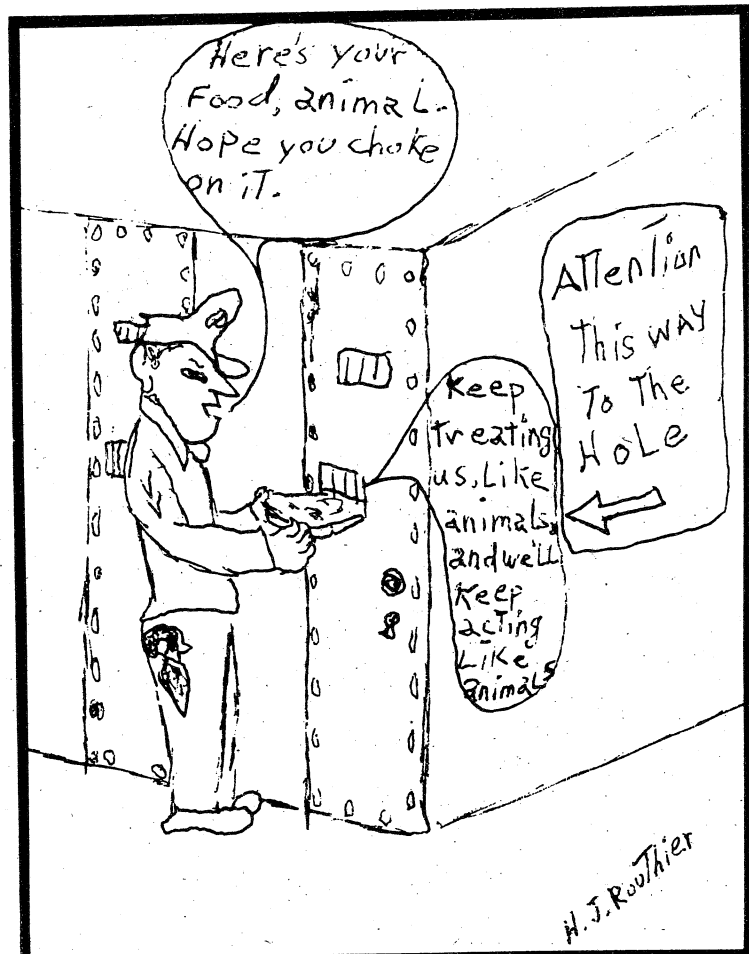 Here's your
Food, animal.
Hope you choke
on iT.
Keep
treating
us, Like
animals,
and we'll
Keep
acting
Like
animals
ATTenTion
This WAY
To The
HoLe
H.J. RouThier